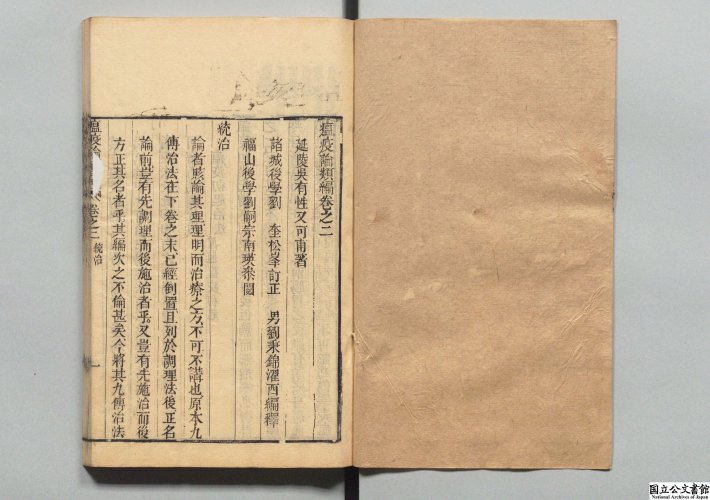 瘟疫論類編卷之三
延陵吳有性又可甫著
諸城後學劉　奎松峯訂正　男劉秉錦濯西編釋
福山後學劉嗣宗南瑛叅閱
統治
論者原論其理理明而治療之方不可不講也原本九
傳治法在下卷之末已經倒置且列於調理法後正名
論前豈有先調理而後施治者乎又豈有先施治而後
方正其名者乎其編次之不倫甚矣今將其九傳治法
瘟疫論
卷之三　統治
一
国立公文書館
National Archives of Japan